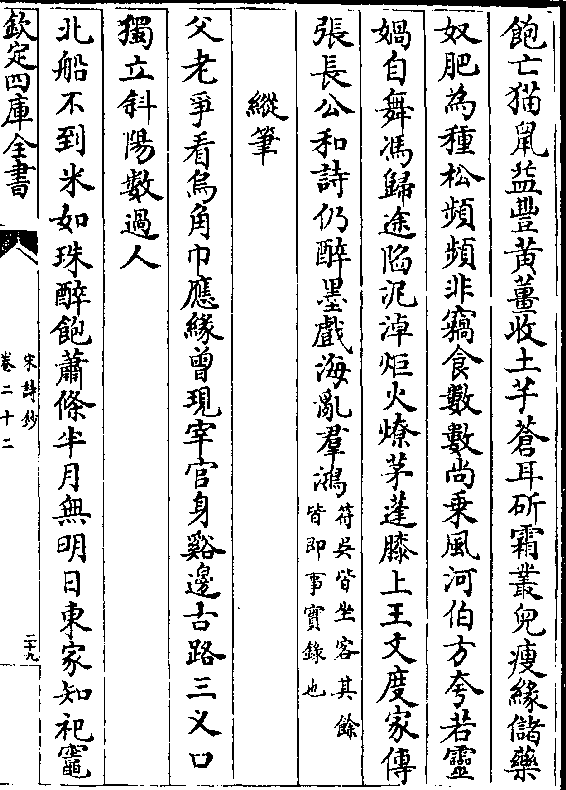 飽亡猫鼠益豐黄薑收土芋蒼耳斫霜叢兒瘦緣儲藥
奴肥為種松頻頻非竊食數數尚乗風河伯方夸若靈
媧自舞馮歸途陷泥淖炬火燎茅蓬膝上王文度家傳
張長公和詩仍醉墨戲海亂羣鴻符吳皆坐客其餘
皆即事實錄也
縱筆
父老爭看烏角巾應緣曾現宰官身谿邊古路三义口
獨立斜陽數過人
北船不到米如珠醉飽蕭條半月無明日東家知祀竈
欽定四庫全書
宋詩鈔
卷二十二
二十九